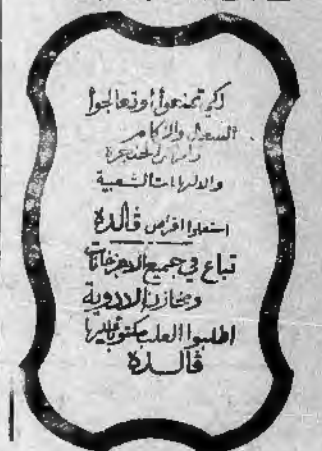 لكي تمنعوا أو تعالجوا
السعال والزكام
وأمراض الحنجرة
والالتهابات الشعبية
استعملوا اقراص ڤالدة
تباع في جميع الاجزاخانات
ومخازن الادوية
اطلبوا العلب مكتوبا عليها
ڤالدة